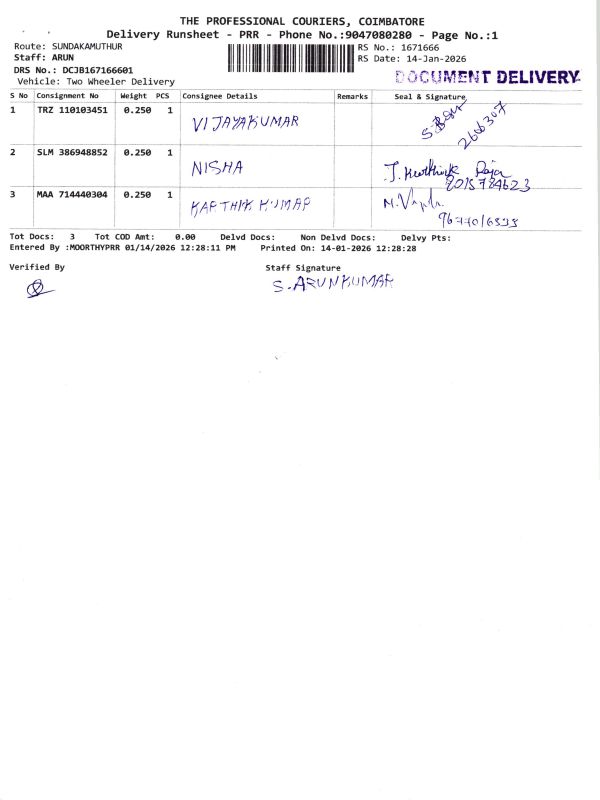 THE PROFESSIONAL COURIERS, COIMBATORE
Delivery Runsheet - PRR - Phone No.:9047080280 - Page No.:1
Route: SUNDAKAMUTHUR
RS No.: 1671666
Staff: ARUN
RS Date: 14-Jan-2026
DRS No.: DCJB167166601
Vehicle: Two Wheeler Delivery
DOCUMENT DELIVERY
S No Consignment No Weight PCS Consignee Details Remarks Seal & Signature
1 TRZ 110103451 0.250 1 VIJAYAKUMAR
2606307
2 SLM 386948852 0.250 1 NISHA J. Karthick Raja
8015784623
3 MAA 714440304 0.250 1 KARTHIK KUMAR
Tot Docs: 3 Tot COD Amt: 0.00 Delvd Docs: Non Delvd Docs: Delvy Pts:
Entered By :MOORTHYPRR 01/14/2026 12:28:11 PM Printed On: 14-01-2026 12:28:28
Verified By Staff Signature
S.ARUNKUMAR